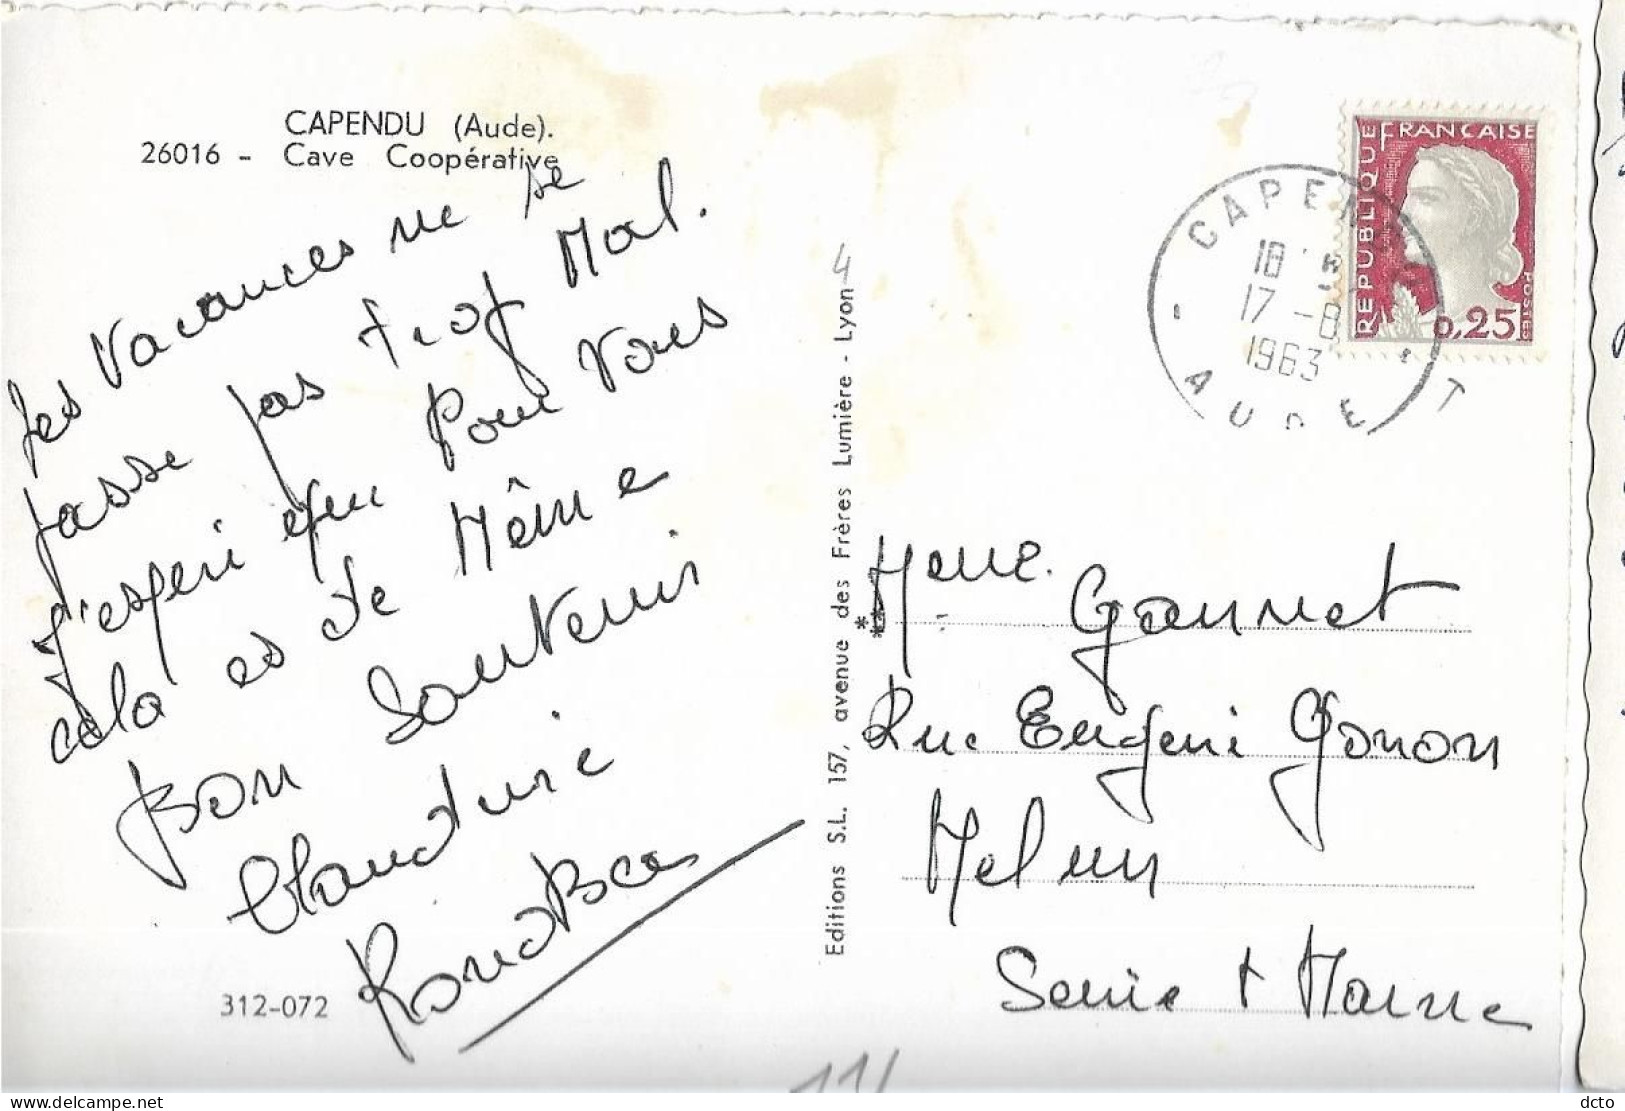 CAPENDU (Aude).
26016 - Cave Coopérative
Les Vacances ne se
passe pas trop Mal.
J'esperi que Pour Vous
cela es de Même
Bon Souvenir
Claudine
312-072
Editions S.L. 157, avenue des Frères Lumière - Lyon
4
REPUBLIQUE FRANCAISE
POSTES
0,25
CAPEN
18
17 -8
1963
AUDE
T
Mme. Gannet
Rue Eugeni Gonon
Melun
Seine & Marne
delcampe.net
dcto